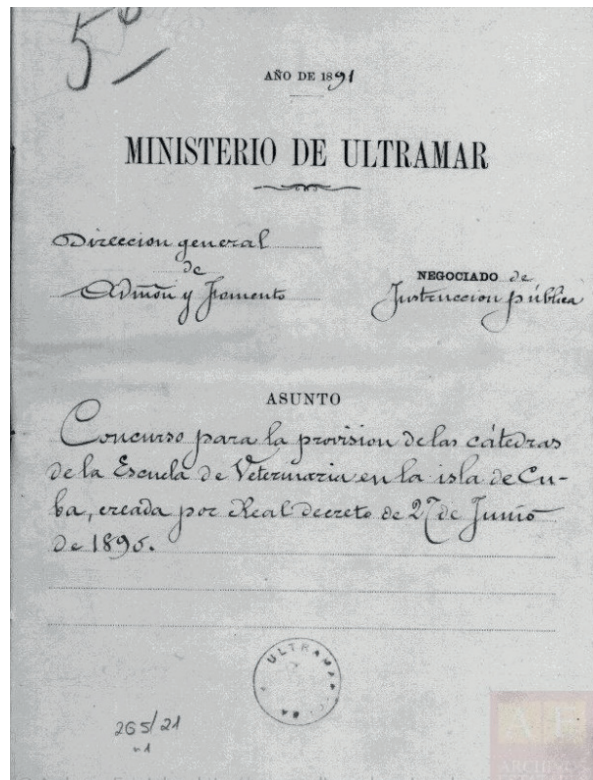 5º
AÑO DE 1891
MINISTERIO DE ULTRAMAR
Direccion general
de
Admón y Fomento
NEGOCIADO de
Instruccion pública
ASUNTO
Concurso para la provision de las cátedras
de la Escuela de Veterinaria en la isla de Cu-
ba, creada por Real decreto de 27 de Junio
de 1890.
ULTRAMAR
265/21
n1
AE
ARCHIVOS